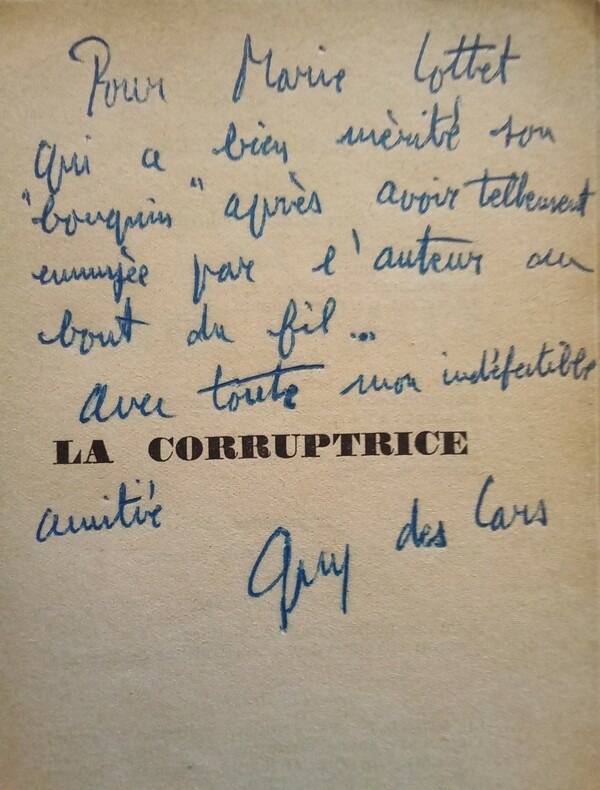 Pour Marie Cottet
qui a bien mérité son
"bouquin" après avoir tellement
ennuyée par l'auteur au
bout du fil...
avec toute mon indéfectible
LA CORRUPTRICE
amitié
Guy des Cars